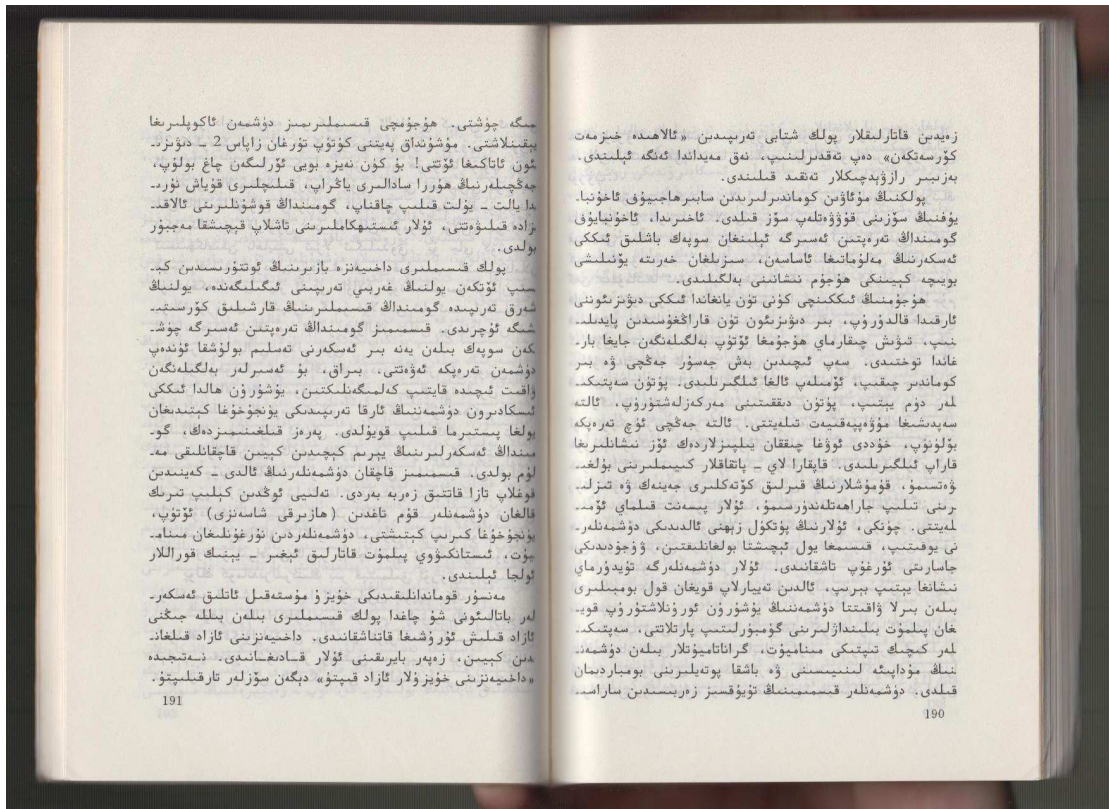 زەيدىن قاتارلىقلار پولك شتابى تەرىپىدىن «ئالاھىدە خىزمەت
كۆرسەتكەن» دەپ تەقدىرلىنىپ، نەق مەيداندا ئەنگە ئېلىندى.
بەزىبىر رازۋېدچىكلار تەنقىد قىلىندى.
پولكنىڭ مۇئاۋىن كوماندىرلىرىدىن سابىرھاجىيوف ئاخۇنبا-
يۇفنىڭ سۆزىنى قۇۋۋەتلەپ سۆز قىلدى. ئاخىرىدا، ئاخۇنبايوف
گومىنداڭ تەرەپتىن ئەسىرگە ئېلىنغان سوپەك باشلىق ئىككى
ئەسكەرنىڭ مەلۇماتىغا ئاساسەن، سىزىلغان خەرىتە يۆنىلىشى
بويىچە كېيىنكى ھۇجۇم نىشانىنى بەلگىلىدى.
ھۇجۇمنىڭ ئىككىنچى كۈنى تۈن يانغاندا ئىككى دىۋىزىئوننى
ئارقىدا قالدۇرۇپ، بىر دىۋىزىئون تۈن قاراڭغۇسىدىن پايدىلى-
نىپ، تىۋىش چىقارماي ھۇجۇمغا ئۆتۈپ بەلگىلەنگەن جايغا بار-
غاندا توختىدى. سەپ ئىچىدىن بەش جەسۇر جەڭچى ۋە بىر
كوماندىر چىقىپ، ئۆمىلەپ ئالغا ئىلگىرىلىدى. پۈتۈن سەپتىكى-
لەر دۈم يېتىپ، پۈتۈن دىققىتىنى مەركەزلەشتۈرۈپ، ئالتە
سەپدىشىغا مۇۋەپپەقىيەت تىلەيتتى. ئالتە جەڭچى ئۈچ تەرەپكە
بۆلۈنۈپ، خۇددى ئوۋغا چىققان يىلپىزلاردەك ئۆز نىشانلىرىغا
قاراپ ئىلگىرىلىدى. قاپقارا لاي - پاتقاقلار كىيىملىرىنى بۇلغى-
ۋەتسىمۇ، قومۇشلارنىڭ قىرلىق كۆتەكلىرى جەينەك ۋە تىزلى-
رىنى تىلىپ جاراھەتلەندۈرسىمۇ، ئۇلار پىسەنت قىلماي ئۆمى-
لەيتتى. چۈنكى، ئۇلارنىڭ پۈتكۈل زېھنى ئالدىدىكى دۈشمەنلەر-
نى يوقىتىپ، قىسىمغا يول ئېچىشتا بولغانلىقتىن، ۋۇجۇدىدىكى
جاسارىتى ئۇرغۇپ تاشقانىدى. ئۇلار دۈشمەنلەرگە تۇيدۇرماي
نىشانغا يېتىپ بېرىپ، ئالدىن تەييارلاپ قويغان قول بومبىلىرى
بىلەن بىرلا ۋاقىتتا دۈشمەننىڭ يوشۇرۇن ئورۇنلاشتۇرۇپ قوي-
غان پىلمۇت بىلىنداژلىرىنى گۈمبۈرلىتىپ پارتلاتتى، سەپتىكى-
لەر كىچىك تىپتىكى مىناميوت، گراناتاميوتلار بىلەن دۈشمەن-
نىڭ مۇداپىئە لىنىيىسىنى ۋە باشقا پوتەيلىرىنى بومباردىمان
قىلدى. دۈشمەنلەر قىسمىمىنىڭ تۇيۇقسىز زەربىسىدىن ساراسى-
190
مىگە چۈشتى. ھۇجۇمچى قىسىملىرىمىز دۈشمەن ئاكوپلىرىغا
يېقىنلاشتى. مۇشۇنداق پەيتنى كۈتۈپ تۇرغان زاپاس 2 - دىۋىزى-
ئون ئاتاكىغا ئۆتتى! بۇ كۈن نەيزە بويى ئۆرلىگەن چاغ بولۇپ،
جەڭچىلەرنىڭ ھۇررا سادالىرى ياڭراپ، قىلىچلىرى قۇياش نۇرى-
دا يالت - يۇلت قىلىپ چاقناپ، گومىنداڭ قوشۇنلىرىنى ئالاقى-
زادە قىلىۋەتتى، ئۇلار ئىستىھكاملىرىنى تاشلاپ قېچىشقا مەجبۇر
بولدى.
پولك قىسىملىرى داخىيەنزە بازىرىنىڭ ئوتتۇرىسىدىن كې-
سىپ ئۆتكەن يولنىڭ غەربىي تەرىپىنى ئىگىلىگەندە، يولنىڭ
شەرق تەرىپىدە گومىنداڭ قىسىملىرىنىڭ قارشىلىق كۆرسىتى-
شىگە ئۇچرىدى. قىسمىمىز گومىنداڭ تەرەپتىن ئەسىرگە چۈش-
كەن سوپەك بىلەن يەنە بىر ئەسكەرنى تەسلىم بولۇشقا ئۈندەپ
دۈشمەن تەرەپكە ئەۋەتتى، بىراق، بۇ ئەسىرلەر بەلگىلەنگەن
ۋاقىت ئىچىدە قايتىپ كەلمىگەنلىكتىن، يوشۇرۇن ھالدا ئىككى
ئىسكادىرون دۈشمەننىڭ ئارقا تەرىپىدىكى يۇنجوخوغا كېتىدىغان
يولغا پىستىرما قىلىپ قويۇلدى. پەرەز قىلغىنىمىزدەك، گو-
مىنداڭ ئەسكەرلىرىنىڭ يېرىم كېچىدىن كېيىن قاچقانلىقى مە-
لۇم بولدى. قىسمىمىز قاچقان دۈشمەنلەرنىڭ ئالدى - كەينىدىن
قوغلاپ تازا قاتتىق زەربە بەردى. تەلىيى ئوڭدىن كېلىپ تىرىك
قالغان دۈشمەنلەر قۇم تاغدىن (ھازىرقى شاسەنزى) ئۆتۈپ،
يۇنجوخوغا كىرىپ كېتىشتى، دۈشمەنلەردىن نۇرغۇنلىغان مىنام-
يوت، ئىستانكىۋوي پىلمۇت قاتارلىق ئېغىر - يېنىك قوراللار
ئولجا ئېلىندى.
مەنسۇر قوماندانلىقىدىكى خۇيزۇ مۇستەقىل ئاتلىق ئەسكەر-
لەر باتالىئونى شۇ چاغدا پولك قىسىملىرى بىلەن بىللە جىڭنى
ئازاد قىلىش ئۇرۇشىغا قاتناشقانىدى. داخىيەنزىنى ئازاد قىلغان-
دىن كېيىن، زەپەر بايرىقىنى ئۇلار قادىغانىدى. نەتىجىدە
«داخىيەنزىنى خۇيزۇلار ئازاد قىپتۇ» دېگەن سۆزلەر تارقىلىپتۇ.
191